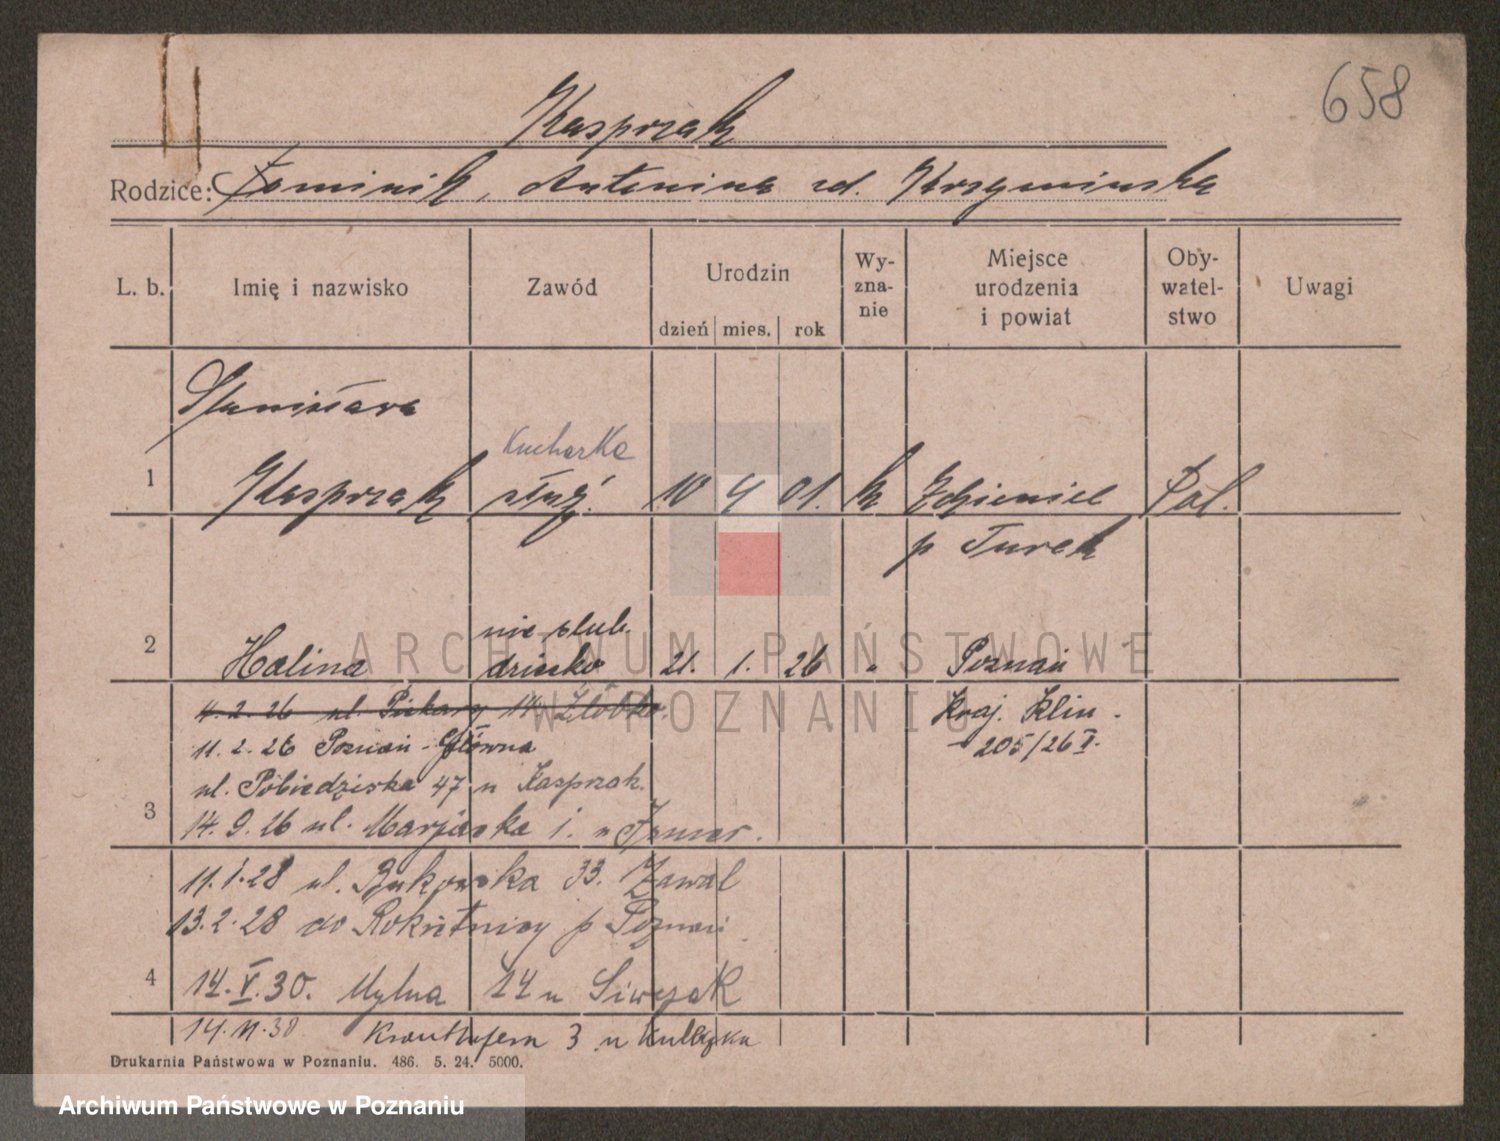 658
Kasprzak
Rodzice: Dominik, Antonina zd. Krzymińska
L. b. Imię i nazwisko Zawód Urodzin dzień mies. rok Wy-zna-nie Miejsce urodzenia i powiat Oby-watel-stwo Uwagi
Stanisława
Kucharka
1 Kasprzak służ. 10 4 01. k Pol.
p Turek
nie ślub.
2 Halina dziecko 21. 1. 26 " Poznań
4. 2. 26 ul. Piekary 14 Żłóbko. Kraj. Klin -
11. 2. 26 Poznań - Główna 205/26 V.
ul. Pobiedziska 47 u Kasprzak.
3 14. 9. 26 ul. Marjacka 1. u
11. 1. 28 ul. Bukowska 33. Zawal
13. 2. 28 do Rokietnicy p Poznań
4 14. V. 30. Mylna 14 u Siwczak
14. 11. 30 Krauthofera 3 u
Drukarnia Państwowa w Poznaniu. 486. 5. 24. 5000.
ARCHIWUM PAŃSTWOWE
W POZNANIU
Archiwum Państwowe w Poznaniu